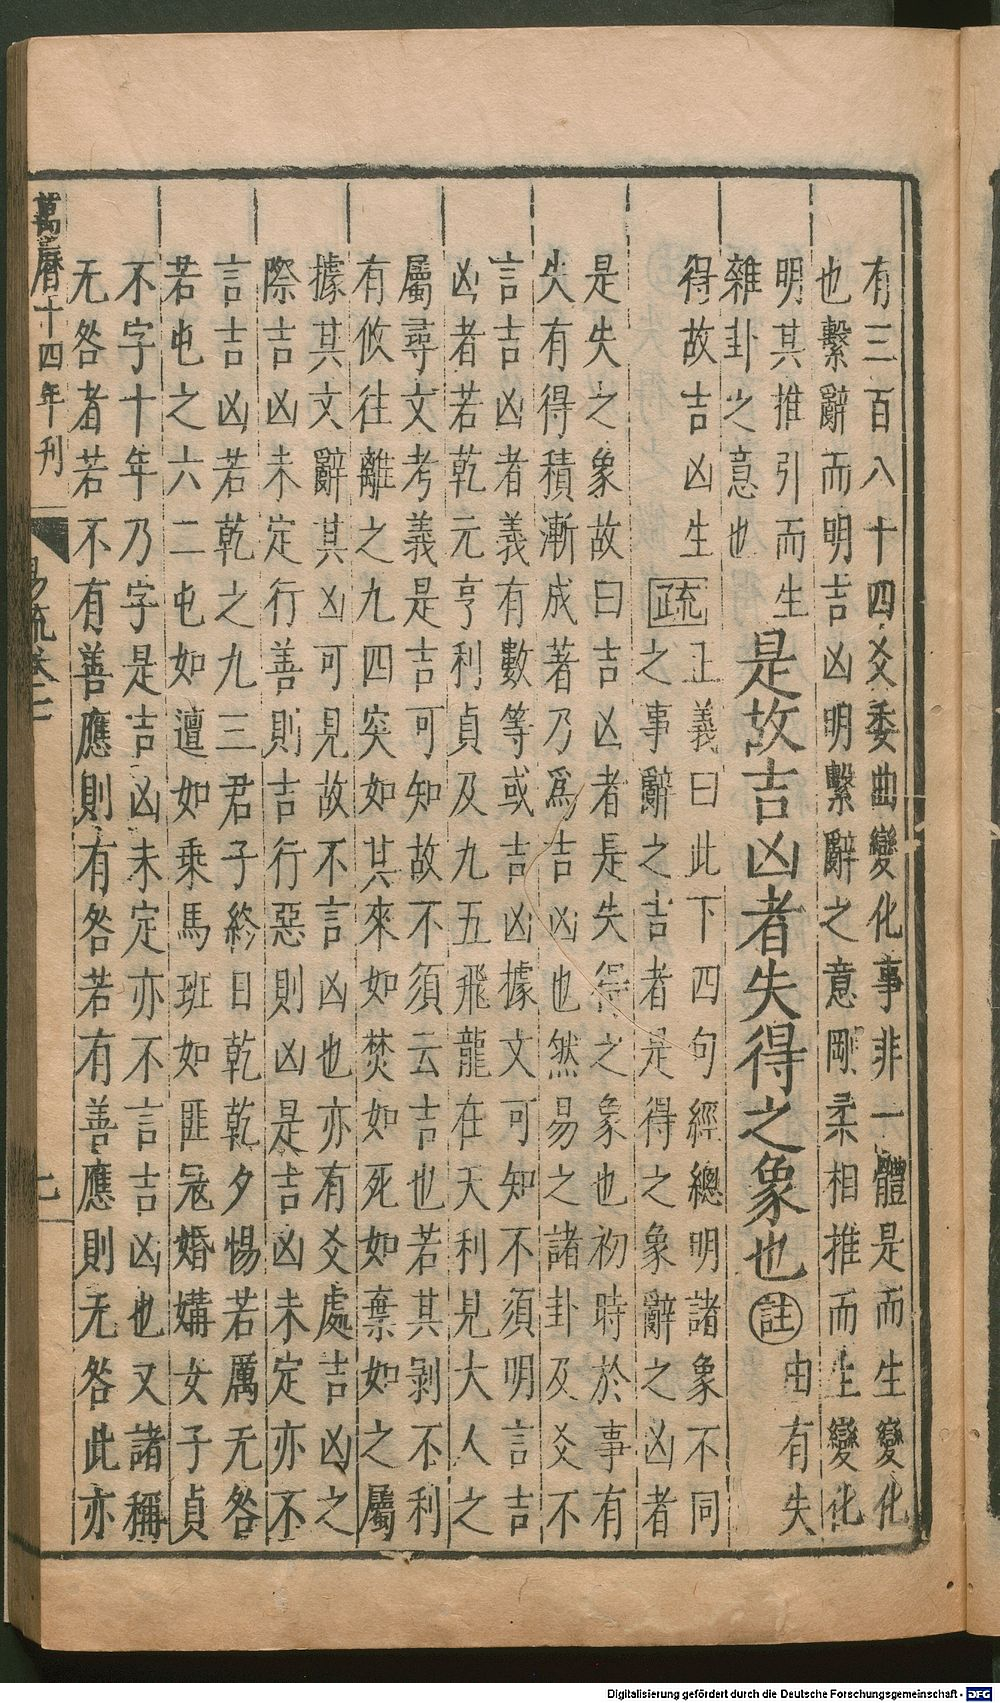 有三百八十四爻委曲變化事非一體是而生變化
也繫辭而明吉凶明繫辭之意剛柔相推而生變化
明其推引而生
雜卦之意也
是故吉凶者失得之象也 註
由有失
得故吉凶生
疏
正義曰此下四句經總明諸象不同
之事辭之吉者是得之象辭之凶者
是失之象故曰吉凶者是失得之象也初時於事有
失有得積漸成著乃爲吉凶也然易之諸卦及爻不
言吉凶者義有數等或吉凶據文可知不須明言吉
凶者若乾元亨利貞及九五飛龍在天利見大人之
屬尋文考義是吉可知故不須云吉也若其剝不利
有攸往離之九四突如其來如焚如死如棄如之屬
據其文辭其凶可見故不言凶也亦有爻處吉凶之
際吉凶未定行善則吉行惡則凶是吉凶未定亦不
言吉凶若乾之九三君子終日乾乾夕惕若厲无咎
若屯之六二屯如邅如乘馬班如匪冦婚媾女子貞
不字十年乃字是吉凶未定亦不言吉凶也又諸稱
无咎者若不有善應則有咎若有善應則无咎此亦
萬曆十四年刊
易疏卷
Digitalisierung gefördert durch die Deutsche Forschungsgemeinschaft - DFG